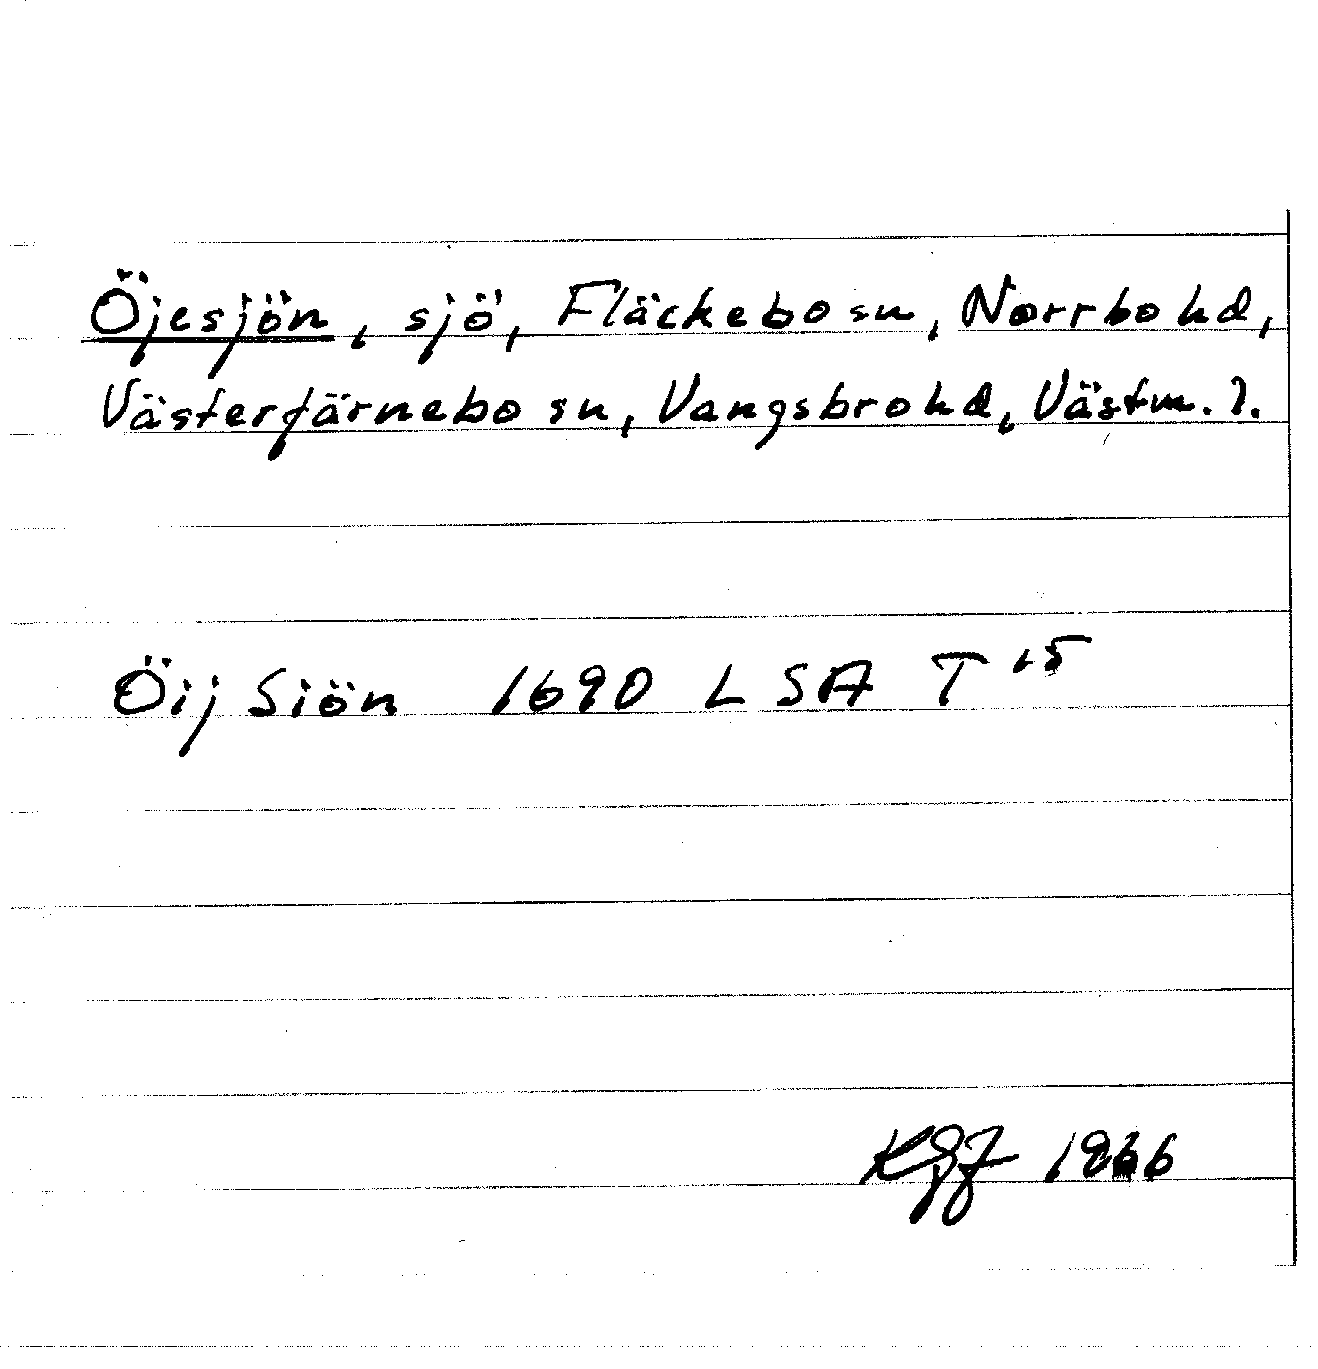 Öjesjön, sjö, Fläckebo sn, Norrbo hd,
Västerfärnebo sn, Vangsbro hd, Västm. l.
Öij Siön 1690 LSA T 15
KGJ